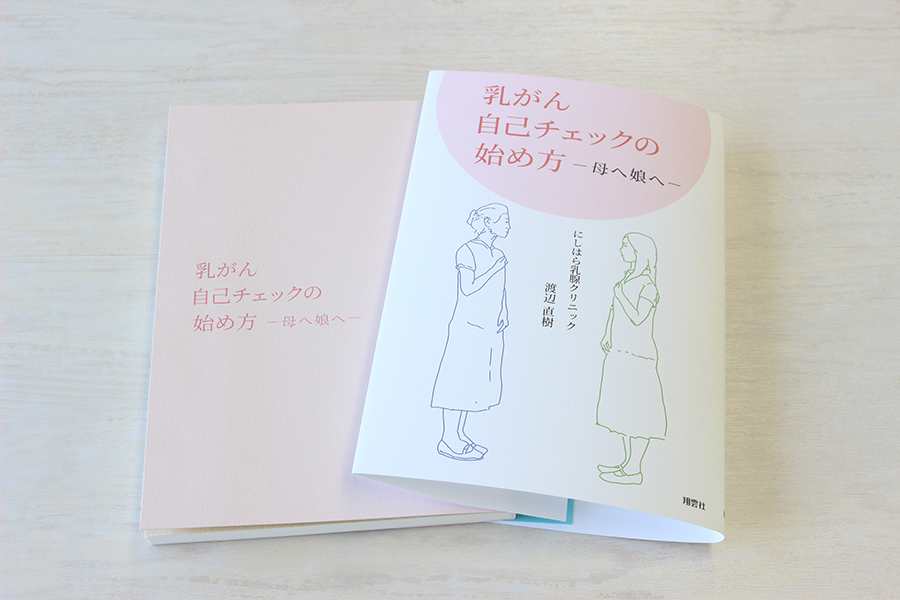 乳がん
自己チェックの
始め方 －母へ娘へ－
乳がん
自己チェックの
始め方 －母へ娘へ－
にしはら乳腺クリニック
渡辺 直樹
翔雲社